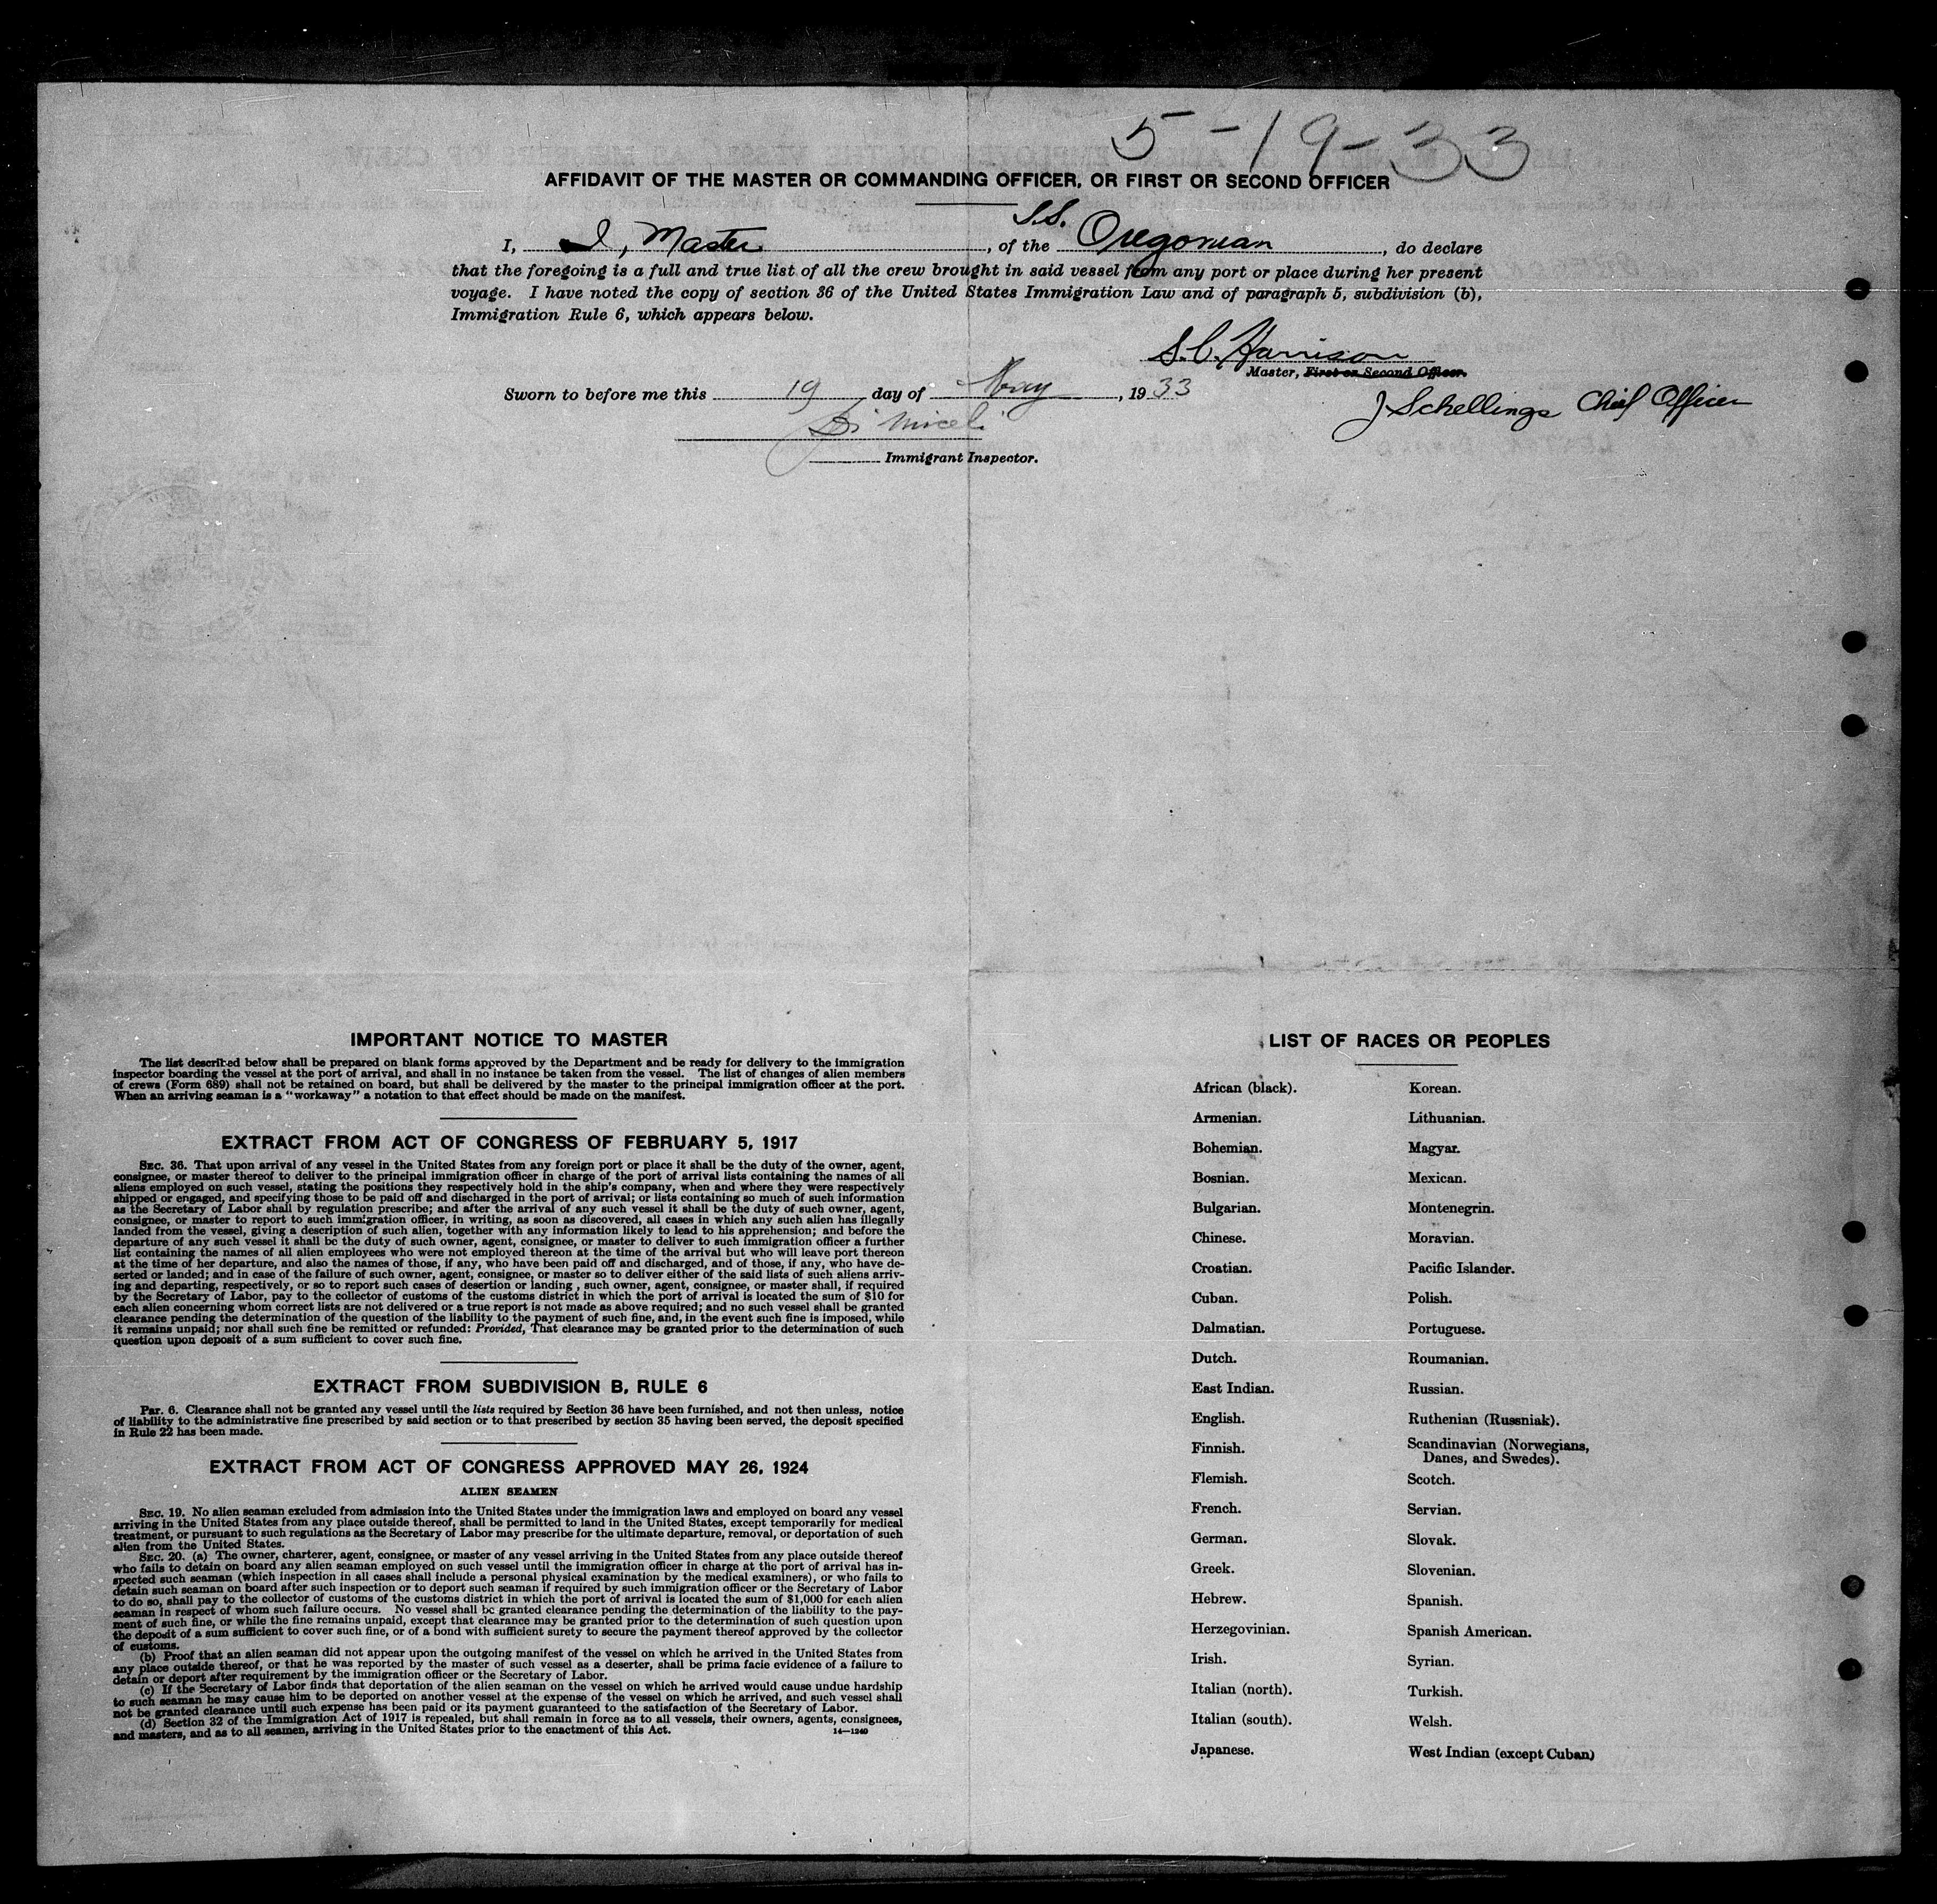 5-19-33
AFFIDAVIT OF THE MASTER OR COMMANDING OFFICER, OR FIRST OR SECOND OFFICER
I, I, Master, of the S.S. Oregonian, do declare
that the foregoing is a full and true list of all the crew brought in said vessel from any port or place during her present
voyage. I have noted the copy of section 36 of the United States Immigration Law and of paragraph 5, subdivision (b),
Immigration Rule 6, which appears below.
S.C. Harrison
Master, First or Second Officer.
Sworn to before me this 19 day of May, 1933
J Schellings Chief Officer
Di Miceli
Immigrant Inspector.
IMPORTANT NOTICE TO MASTER
The list described below shall be prepared on blank forms approved by the Department and be ready for delivery to the immigration
inspector boarding the vessel at the port of arrival, and shall in no instance be taken from the vessel. The list of changes of alien members
of crews (Form 689) shall not be retained on board, but shall be delivered by the master to the principal immigration officer at the port.
When an arriving seaman is a "workaway" a notation to that effect should be made on the manifest.
EXTRACT FROM ACT OF CONGRESS OF FEBRUARY 5, 1917
SEC. 36. That upon arrival of any vessel in the United States from any foreign port or place it shall be the duty of the owner, agent,
consignee, or master thereof to deliver to the principal immigration officer in charge of the port of arrival lists containing the names of all
aliens employed on such vessel, stating the positions they respectively hold in the ship's company, when and where they were respectively
shipped or engaged, and specifying those to be paid off and discharged in the port of arrival; or lists containing so much of such information
as the Secretary of Labor shall by regulation prescribe; and after the arrival of any such vessel it shall be the duty of such owner, agent,
consignee, or master to report to such immigration officer, in writing, as soon as discovered, all cases in which any such alien has illegally
landed from the vessel, giving a description of such alien, together with any information likely to lead to his apprehension; and before the
departure of any such vessel it shall be the duty of such owner, agent, consignee, or master to deliver to such immigration officer a further
list containing the names of all alien employees who were not employed thereon at the time of the arrival but who will leave port thereon
at the time of her departure, and also the names of those, if any, who have been paid off and discharged, and of those, if any, who have de-
serted or landed; and in case of the failure of such owner, agent, consignee, or master so to deliver either of the said lists of such aliens arriv-
ing and departing, respectively, or so to report such cases of desertion or landing , such owner, agent, consignee, or master shall, if required
by the Secretary of Labor, pay to the collector of customs of the customs district in which the port of arrival is located the sum of $10 for
each alien concerning whom correct lists are not delivered or a true report is not made as above required; and no such vessel shall be granted
clearance pending the determination of the question of the liability to the payment of such fine, and, in the event such fine is imposed, while
it remains unpaid; nor shall such fine be remitted or refunded: Provided, That clearance may be granted prior to the determination of such
question upon deposit of a sum sufficient to cover such fine.
EXTRACT FROM SUBDIVISION B, RULE 6
Par. 6. Clearance shall not be granted any vessel until the lists required by Section 36 have been furnished, and not then unless, notice
of liability to the administrative fine prescribed by said section or to that prescribed by section 35 having been served, the deposit specified
in Rule 22 has been made.
EXTRACT FROM ACT OF CONGRESS APPROVED MAY 26, 1924
ALIEN SEAMEN
SEC. 19. No alien seaman excluded from admission into the United States under the immigration laws and employed on board any vessel
arriving in the United States from any place outside thereof, shall be permitted to land in the United States, except temporarily for medical
treatment, or pursuant to such regulations as the Secretary of Labor may prescribe for the ultimate departure, removal, or deportation of such
alien from the United States.
SEC. 20. (a) The owner, charterer, agent, consignee, or master of any vessel arriving in the United States from any place outside thereof
who fails to detain on board any alien seaman employed on such vessel until the immigration officer in charge at the port of arrival has in-
spected such seaman (which inspection in all cases shall include a personal physical examination by the medical examiners), or who fails to
detain such seaman on board after such inspection or to deport such seaman if required by such immigration officer or the Secretary of Labor
to do so, shall pay to the collector of customs of the customs district in which the port of arrival is located the sum of $1,000 for each alien
seaman in respect of whom such failure occurs. No vessel shall be granted clearance pending the determination of the liability to the pay-
ment of such fine, or while the fine remains unpaid, except that clearance may be granted prior to the determination of such question upon
the deposit of a sum sufficient to cover such fine, or of a bond with sufficient surety to secure the payment thereof approved by the collector
of customs.
(b) Proof that an alien seaman did not appear upon the outgoing manifest of the vessel on which he arrived in the United States from
any place outside thereof, or that he was reported by the master of such vessel as a deserter, shall be prima facie evidence of a failure to
detain or deport after requirement by the immigration officer or the Secretary of Labor.
(c) If the Secretary of Labor finds that deportation of the alien seaman on the vessel on which he arrived would cause undue hardship
to such seaman he may cause him to be deported on another vessel at the expense of the vessel on which he arrived, and such vessel shall
not be granted clearance until such expense has been paid or its payment guaranteed to the satisfaction of the Secretary of Labor.
(d) Section 32 of the Immigration Act of 1917 is repealed, but shall remain in force as to all vessels, their owners, agents, consignees,
and masters, and as to all seamen, arriving in the United States prior to the enactment of this Act. 14—1240
LIST OF RACES OR PEOPLES
African (black).
Armenian.
Bohemian.
Bosnian.
Bulgarian.
Chinese.
Croatian.
Cuban.
Dalmatian.
Dutch.
East Indian.
English.
Finnish.
Flemish.
French.
German.
Greek.
Hebrew.
Herzegovinian.
Irish.
Italian (north).
Italian (south).
Japanese.
Korean.
Lithuanian.
Magyar.
Mexican.
Montenegrin.
Moravian.
Pacific Islander.
Polish.
Portuguese.
Roumanian.
Russian.
Ruthenian (Russniak).
Scandinavian (Norwegians,
Danes, and Swedes).
Scotch.
Servian.
Slovak.
Slovenian.
Spanish.
Spanish American.
Syrian.
Turkish.
Welsh.
West Indian (except Cuban)